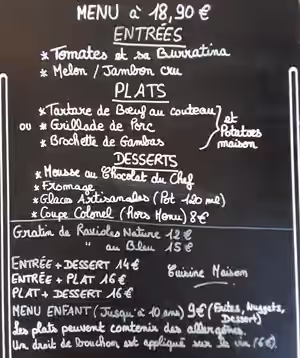 MENU à 18,90 €
ENTRÉES
* Tomates et sa Burratina
* Melon / Jambon cru
PLATS
* Tartare de Bœuf au couteau
ou * Grillade de Porc
* Brochette de Gambas
et Potatoes maison
DESSERTS
* Mousse au Chocolat du Chef
* Fromage
* Glaces Artisanales (Pot 120 ml)
* Coupe Colonel (Hors Menu) 8€
Gratin de Ravioles Nature 12 €
" au Bleu 15 €
ENTRÉE + DESSERT 14€
ENTRÉE + PLAT 16€
PLAT + DESSERT 16€
Cuisine Maison
MENU ENFANT (Jusqu'à 10 ans) 9€ (Frites, Nuggets, Dessert)
Les plats peuvent contenir des allergènes
Un droit de bouchon est appliqué sur le vin (6€)